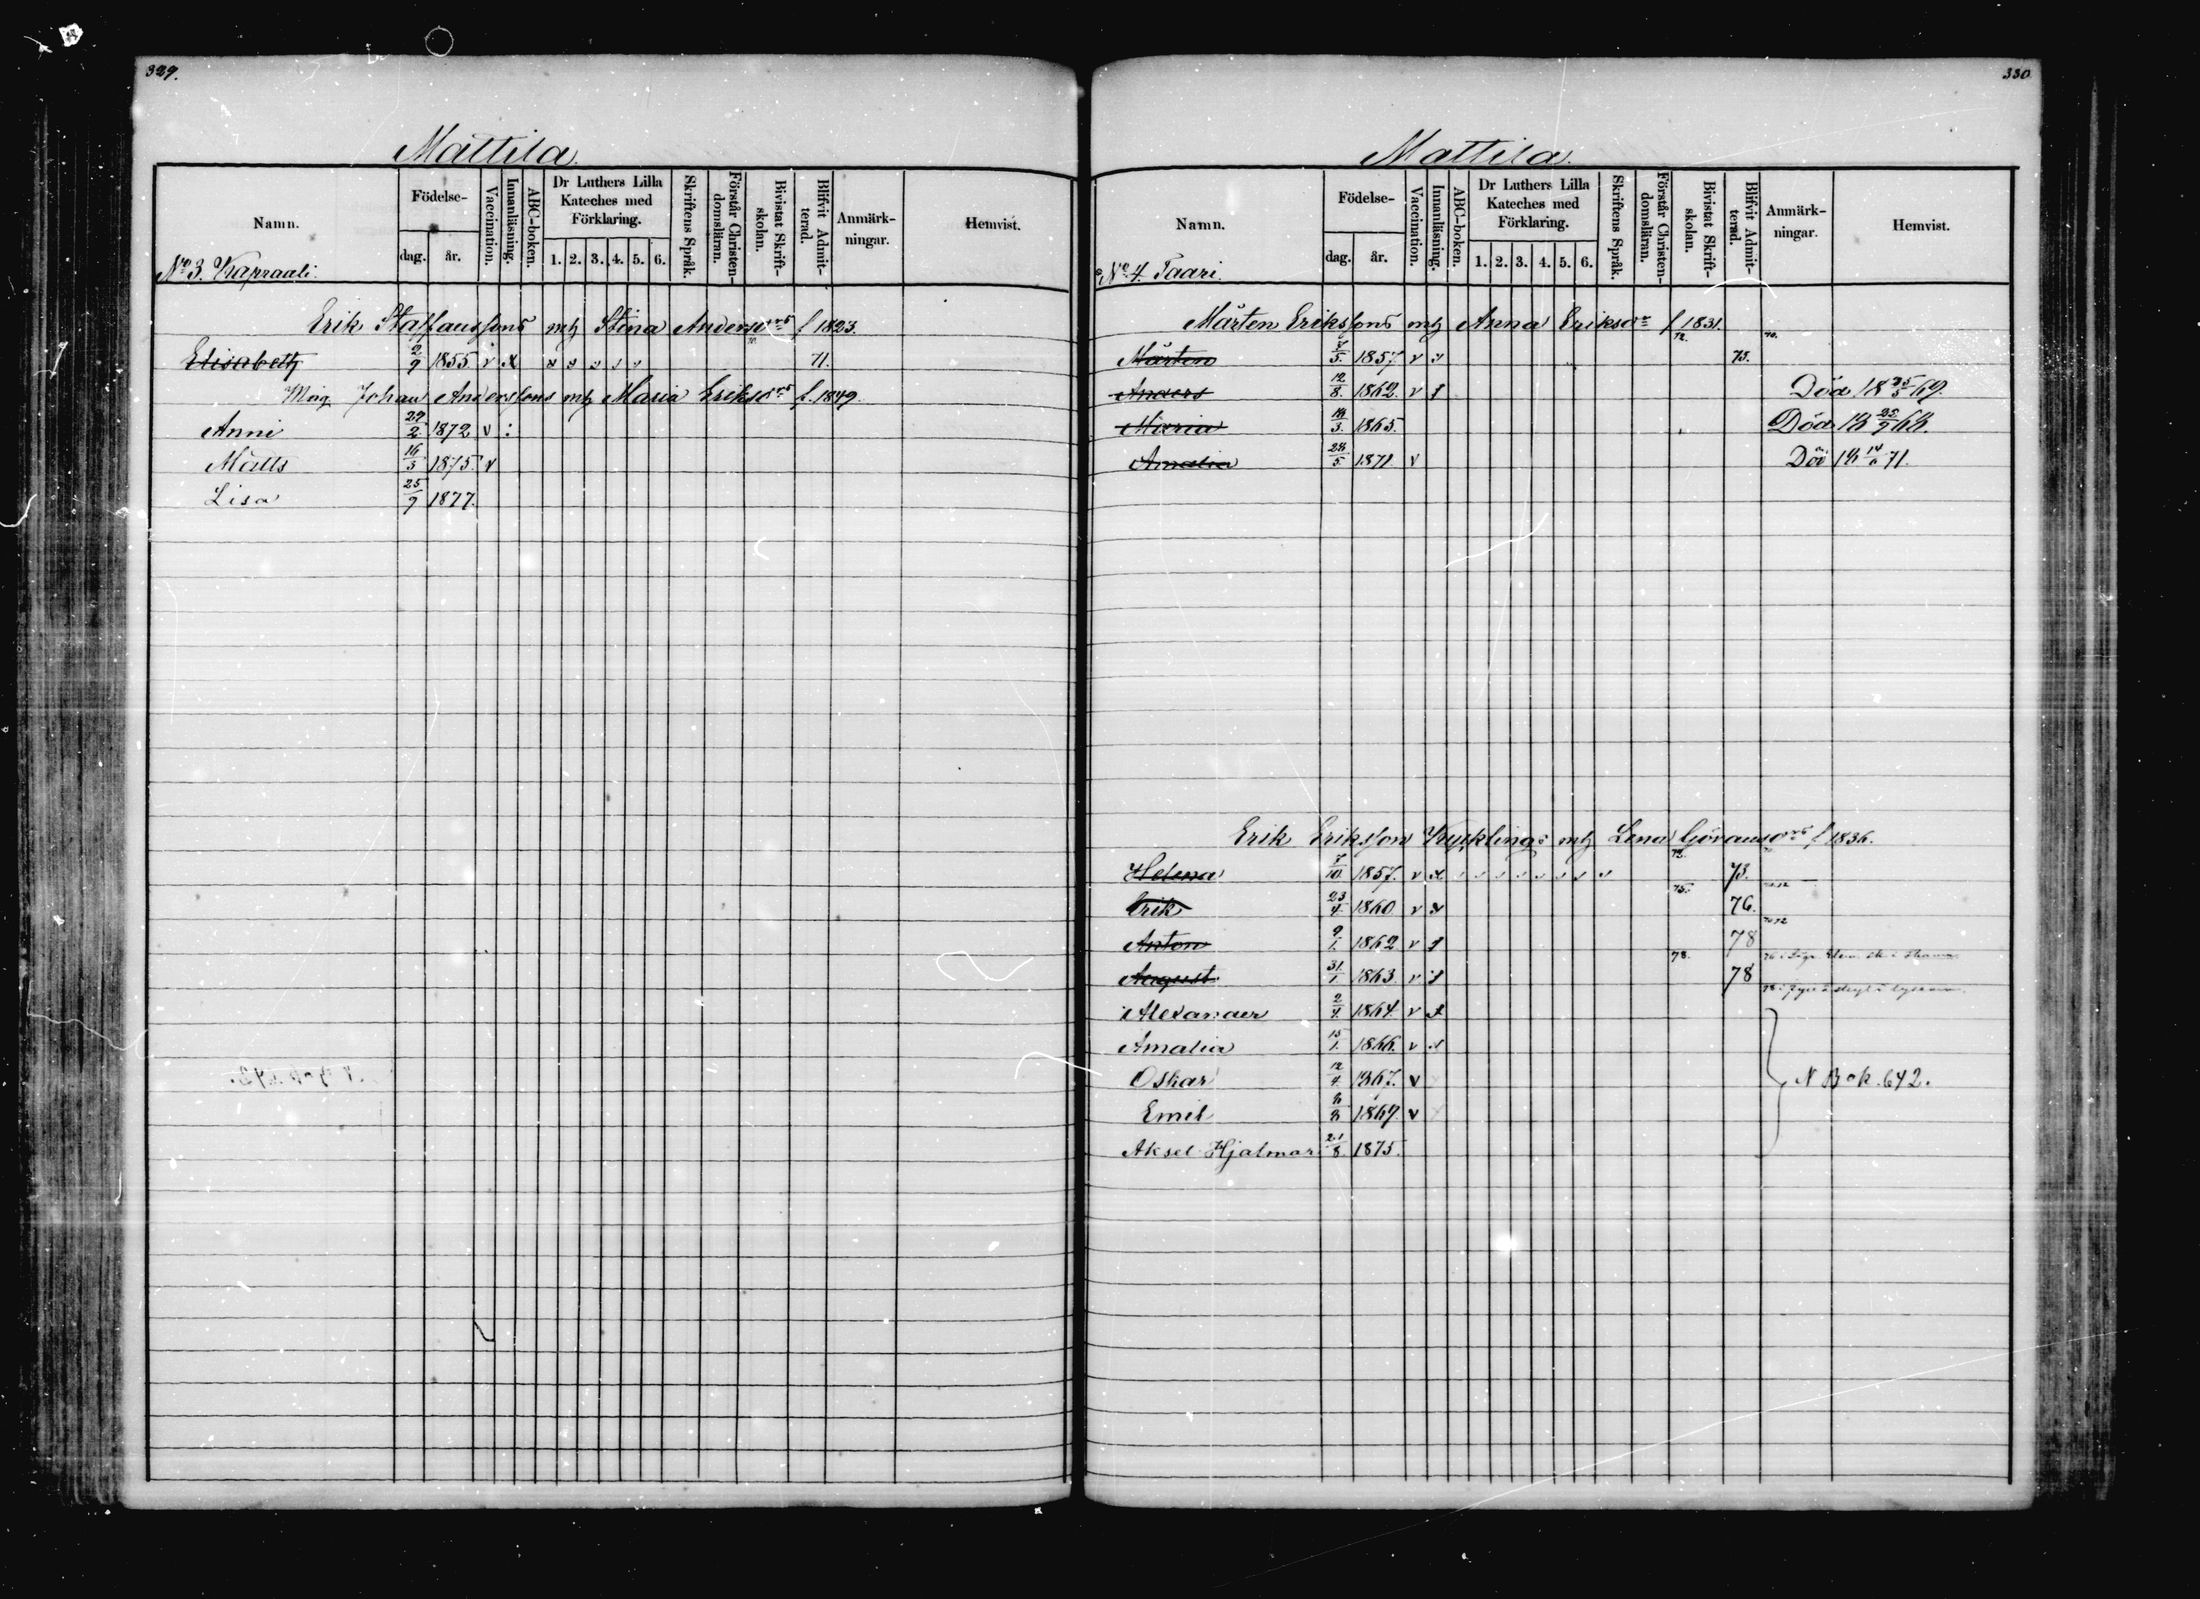 329.
Mattila.
Namn.
Födelse-
dag. år.
Vaccination.
Innanläsning.
ABC-boken.
Dr Luthers Lilla Kateches med Förklaring.
1. 2. 3. 4. 5. 6.
Skriftens Språk.
Förstår Christendomsläran.
Bivistat Skriftskolan.
Blifvit Admitterad.
Anmärkningar.
Hemvist.
No 3. Kapraali.
Erik Staffanssons mh Stina Andersdrs f 1823.
Elisabeth 2/9 1855 v x 71.
Johan Anderssons mh Maria Eriksdrs f. 1849.
Anni 29/2 1872 v :
Matts 16/3 1875. v
Lisa 25/9 1877.
330
Mattila.
Namn.
Födelse-
dag. år.
Vaccination.
Innanläsning.
ABC-boken.
Dr Luthers Lilla Kateches med Förklaring.
1. 2. 3. 4. 5. 6.
Skriftens Språk.
Förstår Christendomsläran.
Bivistat Skriftskolan.
Blifvit Admitterad.
Anmärkningar.
Hemvist.
No 4. Taari.
Mårten Erikssons mh Anna Eriksdr f 1831.
Mårten 1857. v 72. 75.
Anders 12/8. 1862. v Död 18 25/5 69.
Maria 3. 1865. Död 18 68.
Amalia 28/5 1871 v Död 18 71.
Erik Eriksson Kycklings mh Lena Göransdrs f 1836.
Helena 7/10. 1857. v x 72. 73.
Erik 23/4. 1860 v x 75. 76.
Anton 9/1. 1862 v 78
August 31/1. 1863. v 78. 78
Alexander 2/4. 1864 v
Amalia 15/1. 1866. v
Oskar 12/4. 1867. v N Bok. 642.
Emil 1869. v
Aksel Hjalmar 21/8. 1875.